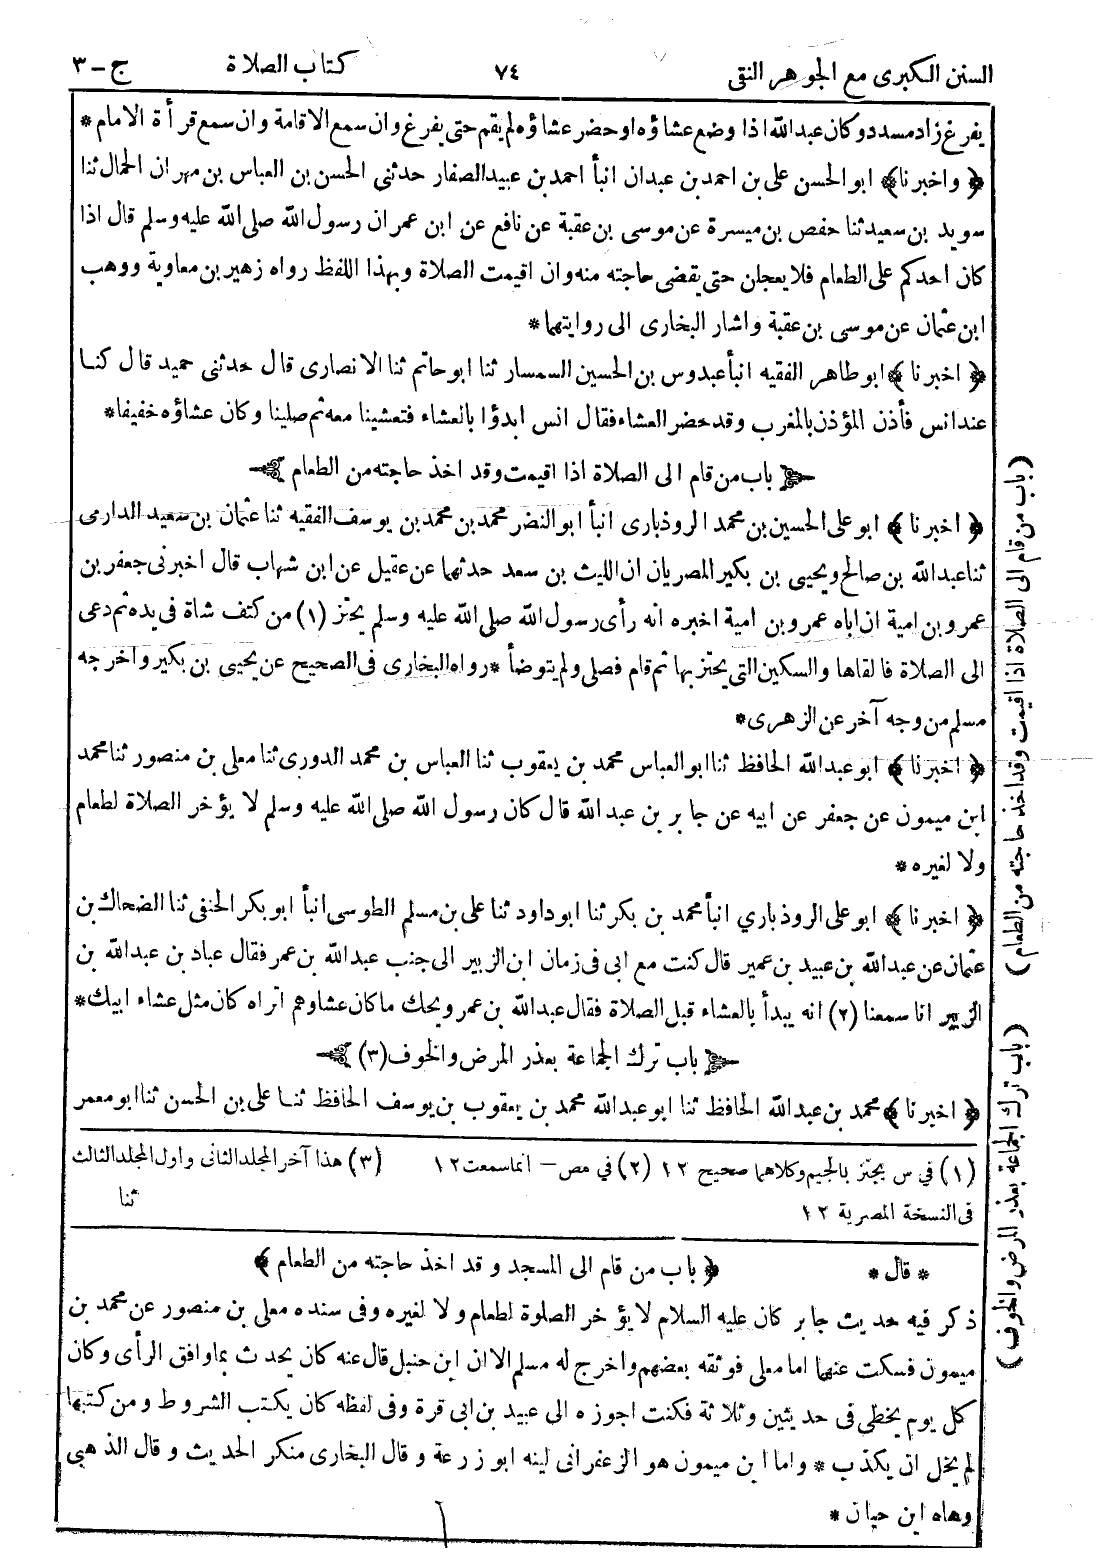 السنن الكبرى مع الجوهر النقى ٧٤ كتاب الصلاة ج – ٣
يفرغ زاد مسدد وكان عبدالله اذا وضع عشاؤه او حضر عشاؤه لم يقم حتى يفرغ وان سمع الاقامة وان سمع قرأة الامام *
﴿ واخبرنا﴾ ابوالحسن على بن احمد بن عبدان انبأ احمد بن عبيد الصفار حدثنى الحسن بن العباس بن مهران الحمال ثنا
سويد بن سعيد ثنا حفص بن ميسرة عن موسى بن عقبة عن نافع عن ابن عمر ان رسول الله صلى الله عليه وسلم قال اذا
كان احدكم على الطعام فلا يعجلن حتى يقضى حاجته منه وان اقيمت الصلاة وبهذا اللفظ رواه زهير بن معاوية ووهب
ابن عثمان عن موسى بن عقبة واشار البخارى الى روايتهما *
﴿ اخبرنا ﴾ ابو طاهر الفقيه انبأ عبدوس بن الحسين السمسار ثنا ابو حاتم ثنا الانصارى قال حدثنى حميد قال كنا
عند انس فأذن المؤذن بالمغرب وقد حضر العشاء فقال انس ابدؤا بالعشاء فتعشينا معه ثم صلينا وكان عشاؤه خفيفا *
باب من قام الى الصلاة اذا اقيمت وقد اخذ حاجته من الطعام
﴿ اخبرنا ﴾ ابو على الحسين بن محمد الروذبارى انبأ ابو النضر محمد بن محمد بن يوسف الفقيه ثنا عثمان بن سعيد الدارمى
ثنا عبدالله بن صالح ويحيى بن بكير المصريان ان الليث بن سعد حدثهما عن عقيل عن ابن شهاب قال اخبرنى جعفر بن
عمرو بن امية ان اباه عمرو بن امية اخبره انه رأى رسول الله صلى الله عليه وسلم يحتز (١) من كتف شاة فى يده ثم دعى
الى الصلاة فالقاها والسكين التى يحتز بها ثم قام فصلى ولم يتوضأ * رواه البخارى فى الصحيح عن يحيى بن بكير واخرجه
مسلم من وجه آخر عن الزهرى *
﴿ اخبرنا ﴾ ابو عبدالله الحافظ ثنا ابو العباس محمد بن يعقوب ثنا العباس بن محمد الدورى ثنا معلى بن منصور ثنا محمد
ابن ميمون عن جعفر عن ابيه عن جابر بن عبدالله قال كان رسول الله صلى الله عليه وسلم لا يؤخر الصلاة لطعام
ولا لغيره *
﴿ اخبرنا ﴾ ابو على الروذباري انبأ محمد بن بكر ثنا ابو داود ثنا على بن مسلم الطوسى انبأ ابو بكر الحنفى ثنا الضحاك بن
عثمان عن عبدالله بن عبيد بن عمير قال كنت مع ابى فى زمان ابن الزبير الى جنب عبدالله بن عمر فقال عباد بن عبدالله بن
الزبير انا سمعنا (٢) انه يبدأ بالعشاء قبل الصلاة فقال عبدالله بن عمر ويحك ما كان عشاوهم اتراه كان مثل عشاء ابيك *
باب ترك الجماعة بعذر المرض والخوف (٣)
﴿ اخبرنا ﴾ محمد بن عبدالله الحافظ ثنا ابو عبدالله محمد بن يعقوب بن يوسف الحافظ ثنا على بن الحسن ثنا ابو معمر
(١) في س يجتز بالجيم وكلاهما صحيح ١٢ (٢) في مص – انما سمعت ١٢ (٣) هذا آخر المجلد الثانى واول المجلد الثالث
فى النسخة المصرية ١٢ ثنا
* قال * ﴿ باب من قام الى المسجد وقد اخذ حاجته من الطعام ﴾
ذكر فيه حديث جابر كان عليه السلام لا يؤخر الصلوة لطعام ولا لغيره وفى سنده معلى بن منصور عن محمد بن
ميمون فسكت عنهما اما معلى فوثقه بعضهم واخرج له مسلم الا ان ابن حنبل قال عنه كان يحدث بما وافق الرأى وكان
كل يوم يخطى فى حديثين وثلاثة فكنت اجوزه الى عبيد بن ابى قرة وفى لفظه كان يكتب الشروط ومن كتبها
لم يخل ان يكذب * واما ابن ميمون هو الزعفرانى لينه ابو زرعة وقال البخارى منكر الحديث وقال الذهبى
وهاه ابن حبان *
(باب من قام الى الصلاة اذا اقيمت وقد اخذ حاجته من الطعام)
(باب ترك الجماعة بعذر المرض والخوف)